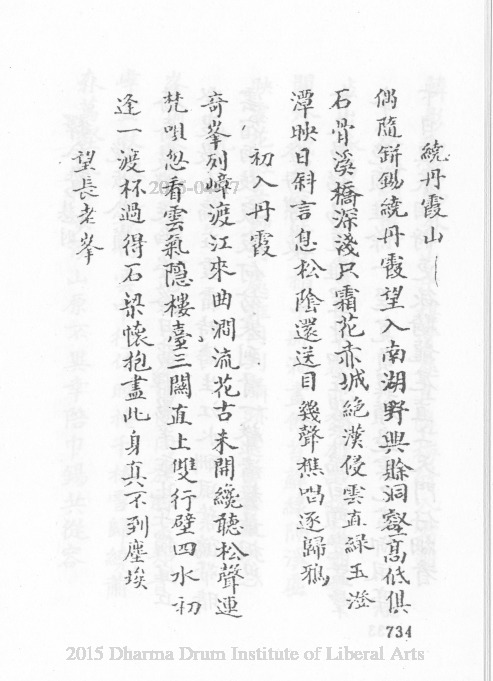 繞丹霞山
偶隨缾錫繞丹霞望入南湖野興賒洞壑高低俱
石骨溪橋深淺只霜花赤城絕漢侵雲直綠玉澄
潭映日斜言息松陰還送目幾聲樵唱逐歸鴉
初入丹霞
奇峯列嶂渡江來曲澗流花古未開纔聽松聲連
梵唄忽看雲氣隱樓臺三關直上雙行壁四水初
逢一渡杯過得石梁懷抱盡此身真不到塵埃
望長老峯
734
2015 Dharma Drum Institute of Liberal Arts